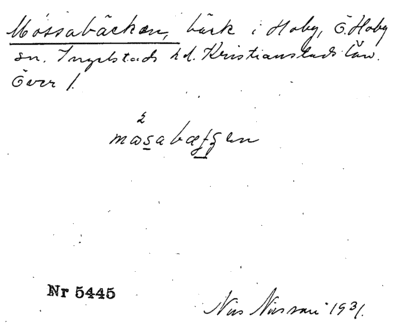 Mossabäcken, bäck i Hoby, Ö. Hoby
sn. Ingelstads hd. Kristianstads län.
Över 1.
2
mɷsabæʃʃen
Nr 5445
Nils Nilsson 1931.